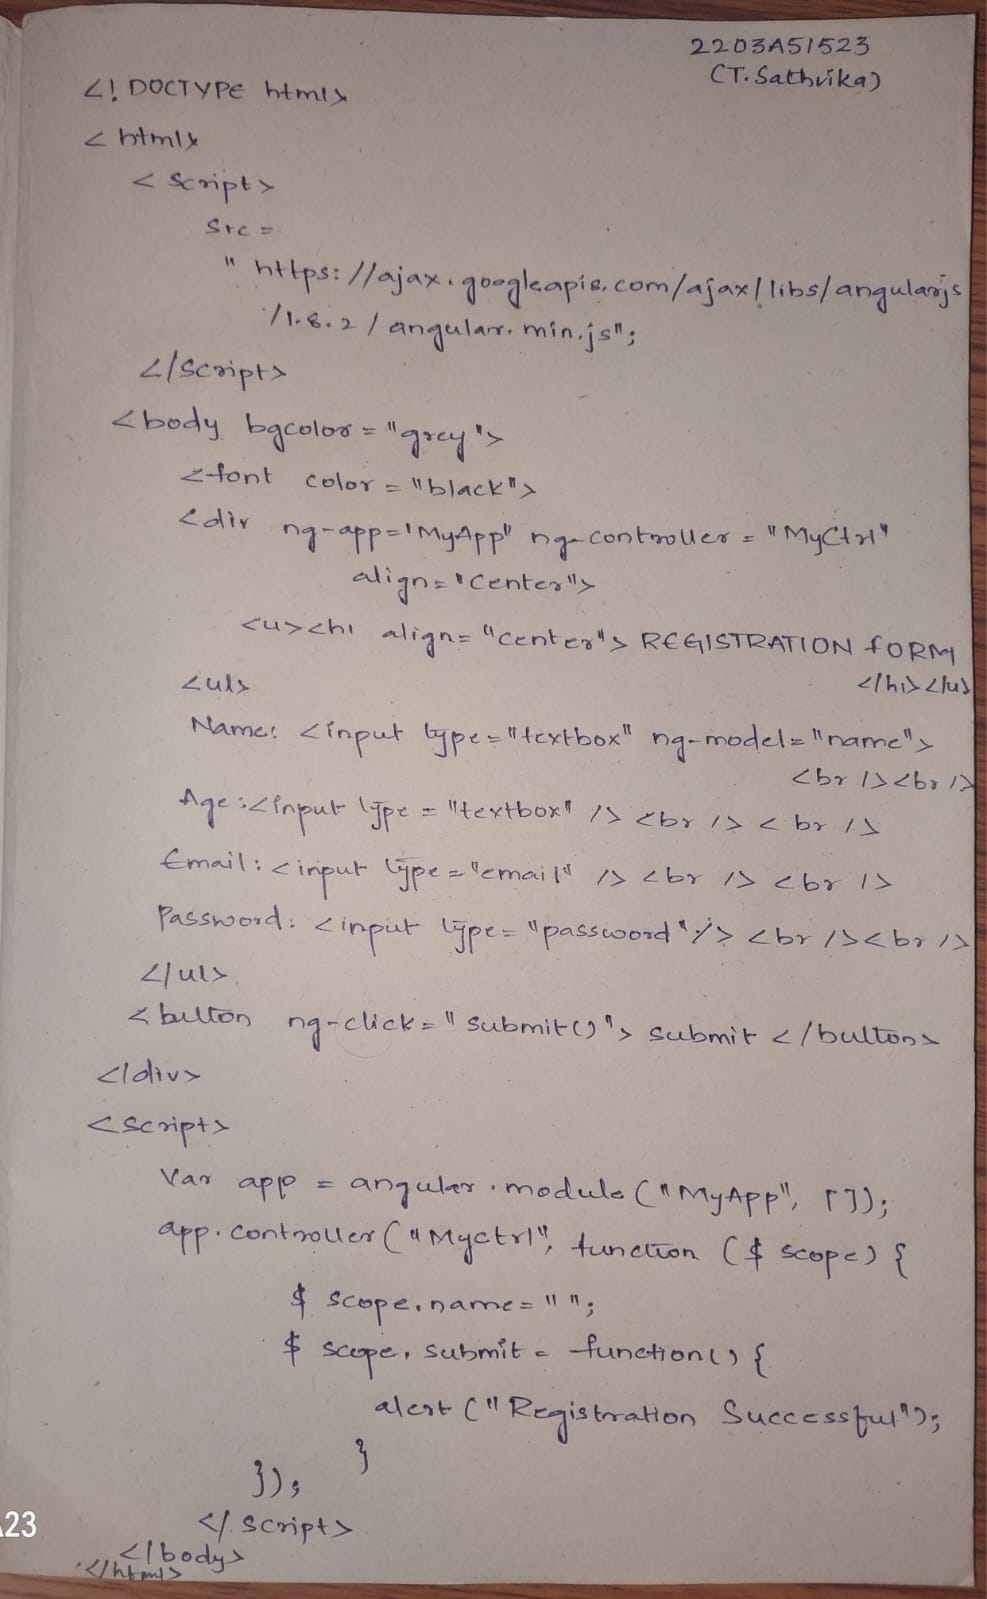 2203A51523
(T. Sathvika)
<! DOCTYPE html>
<html>
<script>
src =
"https://ajax.googleapis.com/ajax/libs/angularjs
/1.8.2/angular.min.js";
</script>
<body bgcolor = "grey">
<font color = "black">
<div ng-app='MyApp" ng-controller = "MyCtrl"
align="Center">
<u><h1 align="center"> REGISTRATION fORM
</h1></u>
<ul>
Name: <input type="textbox" ng-model="name">
<br /><br />
Age:<input type = "textbox" /> <br /> <br />
Email: <input type="email" /> <br /> <br />
Password: <input type= "password"/> <br /><br />
</ul>
<button ng-click="submit()"> submit </button>
</div>
<script>
Var app = angular.module("MyApp", []);
app.controller("Myctrl", function ($ scope) {
$ scope.name= " ";
$ scope. submit = function() {
alert ("Registration Successful");
}
});
</script>
</body>
</html>
23